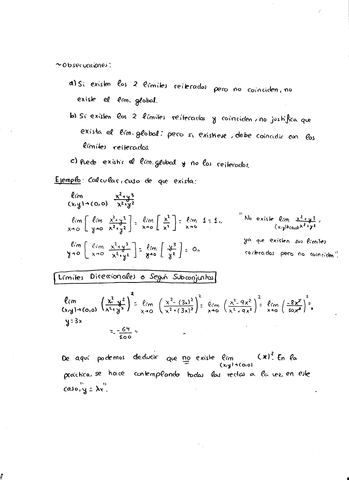 ~Observaciones:
a) Si existen los 2 límites reiterados pero no coinciden, no
existe el lim. global.
b) Si existen los 2 límites reiterados y coinciden, no justifica que
exista el lim. global; pero si existiese, debe coincidir con los
límites reiterados.
c) Puede existir el lim. global y no los reiterados.
Ejemplo: Calcular, caso de que exista:
lim (x,y)→(0,0) x²+y³/x²+y²
lim x→0 [lim y→0 x²+y³/x²+y²] = lim x→0 [x²/x²] = lim x→0 1 = 1.
lim y→0 [lim x→0 x²+y³/x²+y²] = lim y→0 [y³/y²] = 0.
"No existe lim (x,y)→(0,0) x²+y³/x²+y²,
ya que existen sus límites
reiterados pero no coinciden".
Límites Direccionales o Según Subconjuntos
lim (x,y)→(0,0) y=3x (x²-y²/x²+y²)² = lim x→0 (x²-(3x)²/x²+(3x)²)² = lim x→0 (x²-9x²/x²+9x²)² = lim x→0 (-8x²/10x²)² =
= -64/100 =
De aquí podemos deducir que no existe lim (x,y)→(0,0) (x)². En la
práctica, se hace contemplando todas las rectas a la vez, en este
caso, "y = λx".